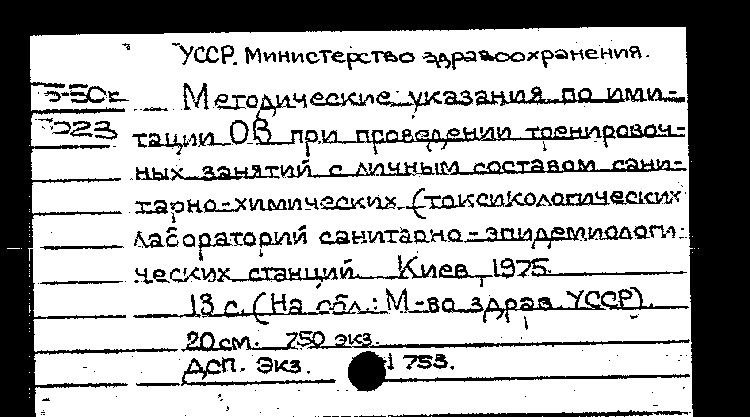 УССР. Министерство здравоохранения.
Методические указания по ими-
тации ОВ при проведении тренировоч-
ных занятий с личным составом сани-
тарно-химических (токсикологических
лабораторий санитарно-эпидемиологи-
ческих станций. Киев, 1975.
13 с. (На обл.: М-во здрав. УССР).
20 см. 750 экз.
ДСП. Экз. 753.